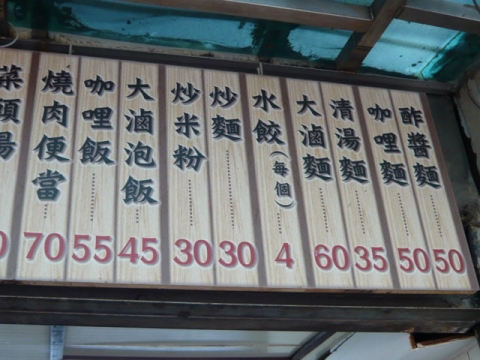 酢醬麵 50
咖哩麵 50
清湯麵 35
大滷麵 60
水餃(每個) 4
炒麵 30
炒米粉 30
大滷泡飯 45
咖哩飯 55
燒肉便當 70
菜頭湯